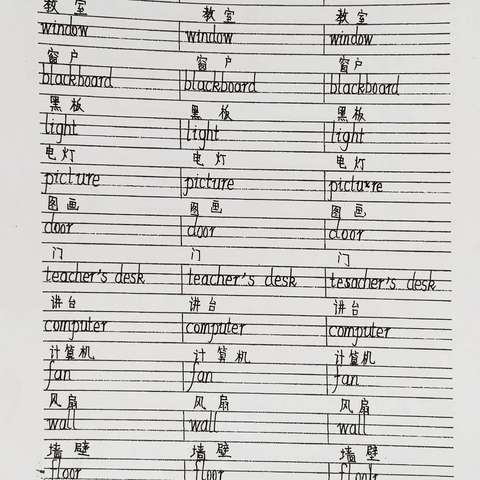 教室 教室 教室
window window window
窗户 窗户 窗户
blackboard blackboard blackboard
黑板 黑板 黑板
light light light
电灯 电灯 电灯
picture picture picture
图画 图画 图画
door door door
门 门 门
teacher's desk teacher's desk tesacher's desk
讲台 讲台 讲台
computer computer computer
计算机 计算机 计算机
fan fan fan
风扇 风扇 风扇
wall wall wall
墙壁 墙壁 墙壁
floor floor floor